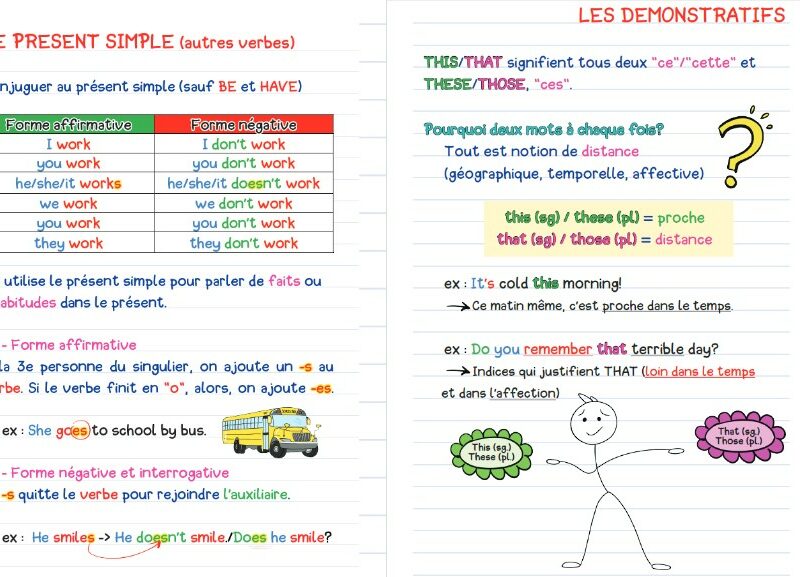 E PRESENT SIMPLE (autres verbes)
njuguer au présent simple (sauf BE et HAVE)
Forme affirmative Forme négative
I work I don't work
you work you don't work
he/she/it works he/she/it doesn't work
we work we don't work
you work you don't work
they work they don't work
utilise le présent simple pour parler de faits ou
abitudes dans le présent.
- Forme affirmative
la 3e personne du singulier, on ajoute un -s au
rbe. Si le verbe finit en "o", alors, on ajoute -es.
ex : She goes to school by bus.
- Forme négative et interrogative
-s quitte le verbe pour rejoindre l'auxiliaire.
ex : He smiles -> He doesn't smile./Does he smile?
LES DEMONSTRATIFS
THIS/THAT signifient tous deux "ce"/"cette" et
THESE/THOSE, "ces".
Pourquoi deux mots à cheque fois?
Tout est notion de distance
(géographique, temporelle, affective)
this (sg) / these (pl) = proche
that (sg) / those (pl) = distance
ex : It's cold this morning!
Ce matin même, c'est proche dans le temps.
ex : Do you remember that terrible day?
Indices qui justifient THAT (loin dans le temps
et dans l'affection)
This (sg.)
These (pl.)
That (sg.)
Those (pl.)